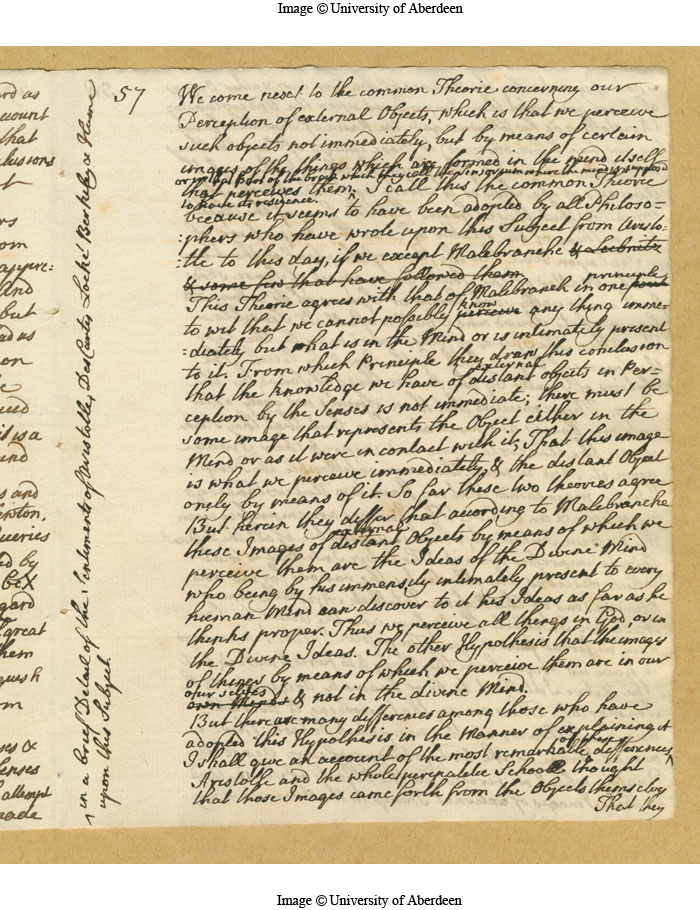 Image © University of Aberdeen
57
We come next to the common Theorie concerning our
Perception of external Objects, which is that we perceive
such objects not immediately, but by means of certain
images of the things which are formed in the mind itself
or in that part of the brain which they call the sensorium where the mind is supposed
that perceives them. I call this the common Theorie
to have its residence.
because it seems to have been adopted by all Philoso=
:phers who have wrote upon this Subject from Aristo:
:tle to this day, if we except Malebranche & Leibnitz
& some few that have followed them
principle
This Theorie agrees with that of Malebranch in one point
know
to wit that we cannot possibly perceive any thing imme:
:diately but what is in the Mind or is intimately present
to it. From which Principle they draw this conclusion
external
that the knowledge we have of distant objects in Per=
ception by the Senses is not immediate; there must be
some image that represents the Object either in the
Mind or as it were in contact with it; That this image
is what we perceive immediately, & the distant Object
onely by means of it. So far these two theories agree
But herein they differ that according to Malebranche
external
these Images of distant Objects by means of which we
perceive them are the Ideas of the Divine Mind
who being by his immensity intimately present to every
human Mind can discover to it his Ideas as far as he
thinks proper. Thus we perceive all things in God, or in
the Divine Ideas. The other Hypothesis is that the images
of things by means of which we perceive them are in our
our selves
own Minds & not in the divine Mind.
But there are many differences among those who have
adopted this Hypothesis in the Manner of explaining it
I shall give an account of the most remarkable of these differences
Aristotle and the whole peripatetic School thought
that those Images came forth from the Objects themselves
That they
in a brief Detail of the Sentiments of Aristotle, Des Cartes Locke Berkley & Hume
upon this Subject.
Image © University of Aberdeen